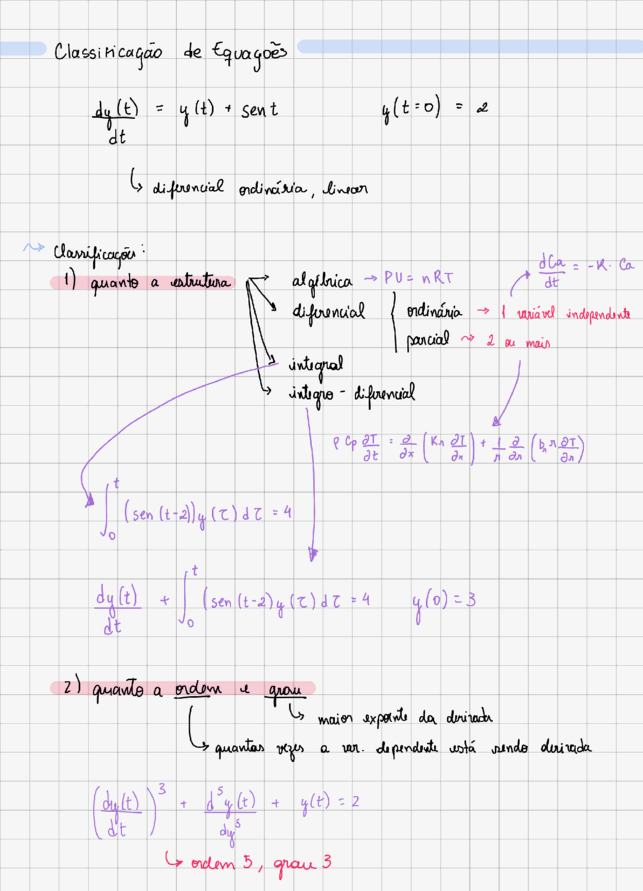 Classificação de Equações
dy(t)/dt = y(t) + sen t    y(t=0) = 2
↳ diferencial ordinária, linear
⤳ Classificações:
1) quanto a estrutura
→ algébrica → PV = nRT
dCa/dt = -K · Ca
→ diferencial { ordinária → 1 variável independente
parcial ⤳ 2 ou mais
→ integral
→ integro-diferencial
ρ Cp ∂T/∂t = ∂/∂x (Kx ∂T/∂x) + 1/r ∂/∂r (br r ∂T/∂r)
∫₀ᵗ (sen (t-2)) y (τ) dτ = 4
dy(t)/dt + ∫₀ᵗ (sen (t-2) y (τ) dτ = 4    y(0) = 3
2) quanto a ordem e grau
↳ maior expoente da derivada
↳ quantas vezes a var. dependente está sendo derivada
(dy(t)/dt)³ + d⁵y(t)/dy⁵ + y(t) = 2
↳ ordem 5, grau 3